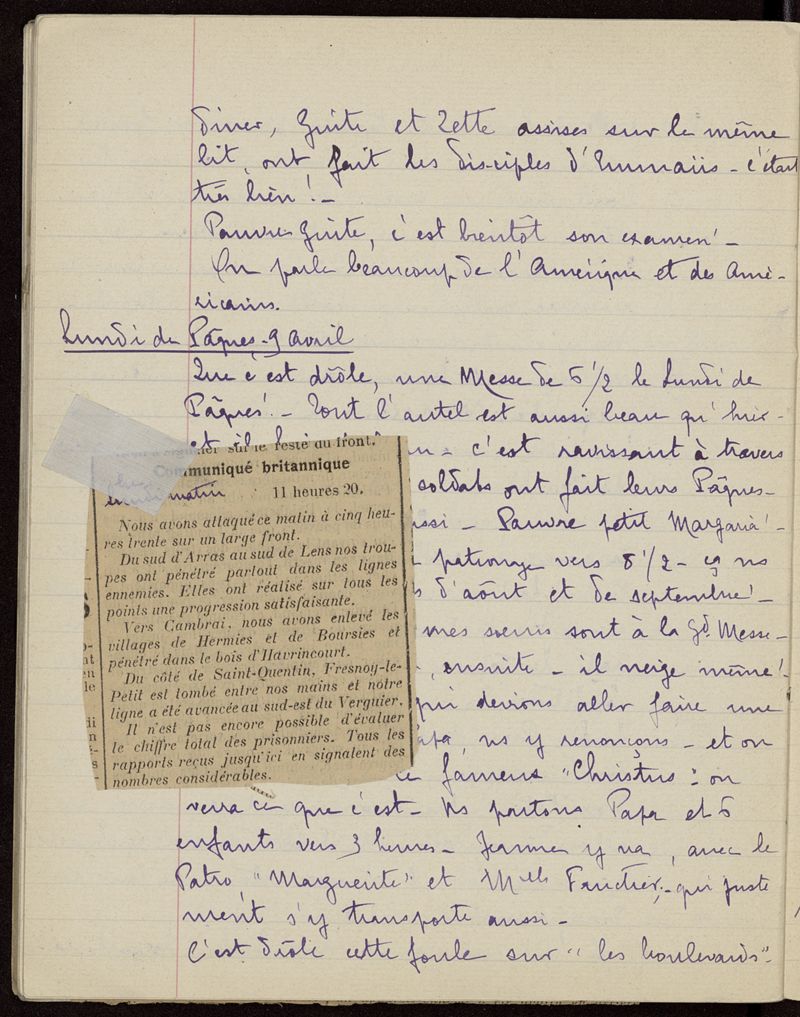 dîner, Guite et Zette assises sur le même
lit, ont fait les disciples d'Emmaüs - c'était
très bien ! -
Pauvre Guite, c'est bientôt son examen ! -
On parle beaucoup de l'Amérique et des Amé-
ricains.
Lundi de Pâques - 9 avril
Que c'est drôle, une Messe de 6 1/2 le Lundi de
Pâques ! - Tout l'autel est aussi beau qu'hier -
et il - c'est ravissant à travers
soldats ont fait leurs Pâques -
ssi - Pauvre petit Margaria ! -
patronage vers 8 1/2 - ns
d'août et de septembre ! -
mes soeurs sont à la Gd Messe -
, ensuite - il neige même ! -
qui devions aller faire une
apa, ns y renonçons - et on
le fameux "Christus" : on
verra ce que c'est - Ns partons Papa et 6
enfants vers 3 heures - Jeanne y va, avec le
Patro, "Marguerite" et Melle - qui juste
ment s'y transporte aussi -
C'est drôle cette foule sur "les boulevards" -
sur le reste du front.
Communiqué britannique
matin 11 heures 20.
Nous avons attaqué ce matin à cinq heu-
res trente sur un large front.
Du sud d'Arras au sud de Lens nos trou-
pes ont pénétré partout dans les lignes
ennemies. Elles ont réalisé sur tous les
points une progression satisfaisante.
Vers Cambrai, nous avons enlevé les
villages de Hermies et de Boursies et
pénétré dans le bois d'Havrincourt.
Du côté de Saint-Quentin, Fresnoy-le-
Petit est tombé entre nos mains et notre
ligne a été avancée au sud-est du Verguier.
Il n'est pas encore possible d'évaluer
le chiffre total des prisonniers. Tous les
rapports reçus jusqu'ici en signalent des
nombres considérables.